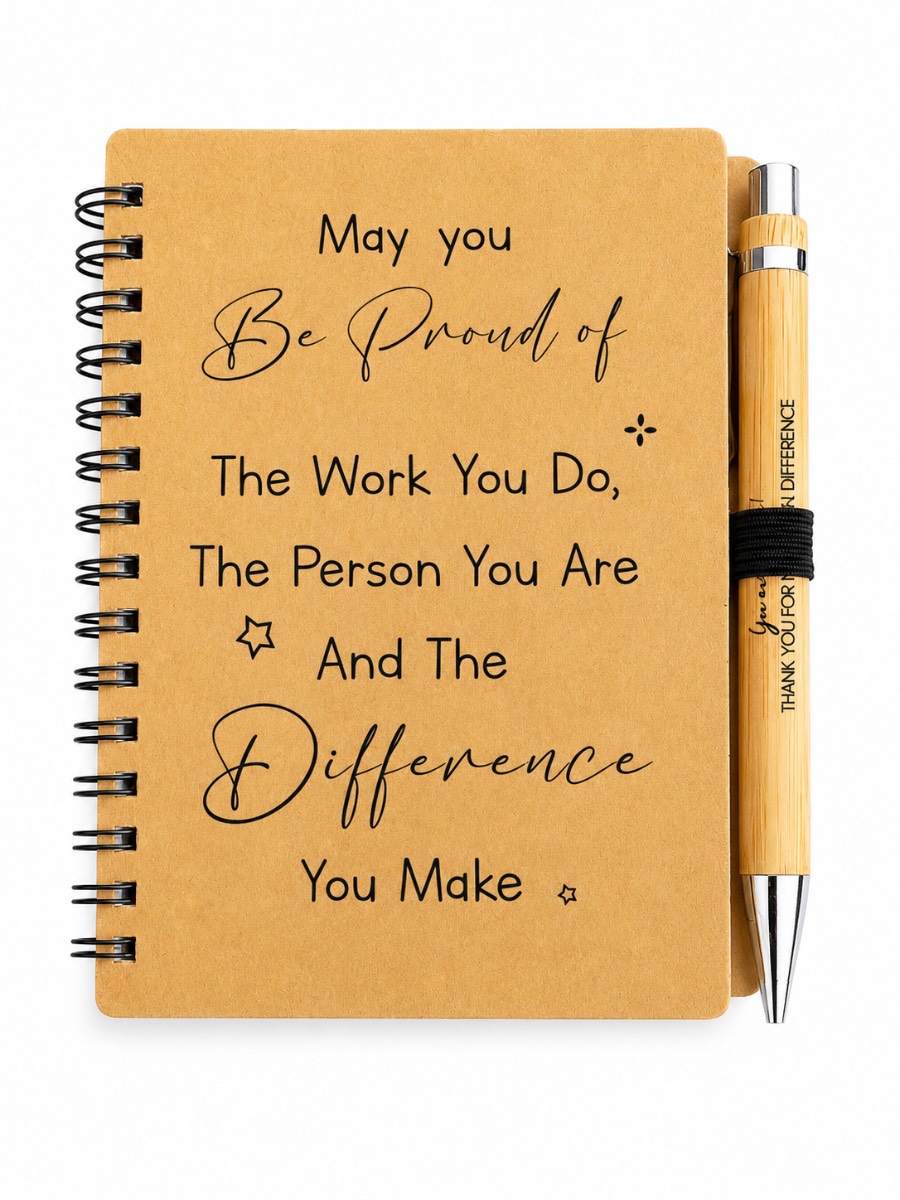 May you
Be Proud of
The Work You Do,
The Person You Are
And The
Difference
You Make
THANK YOU FOR DIFFERENCE